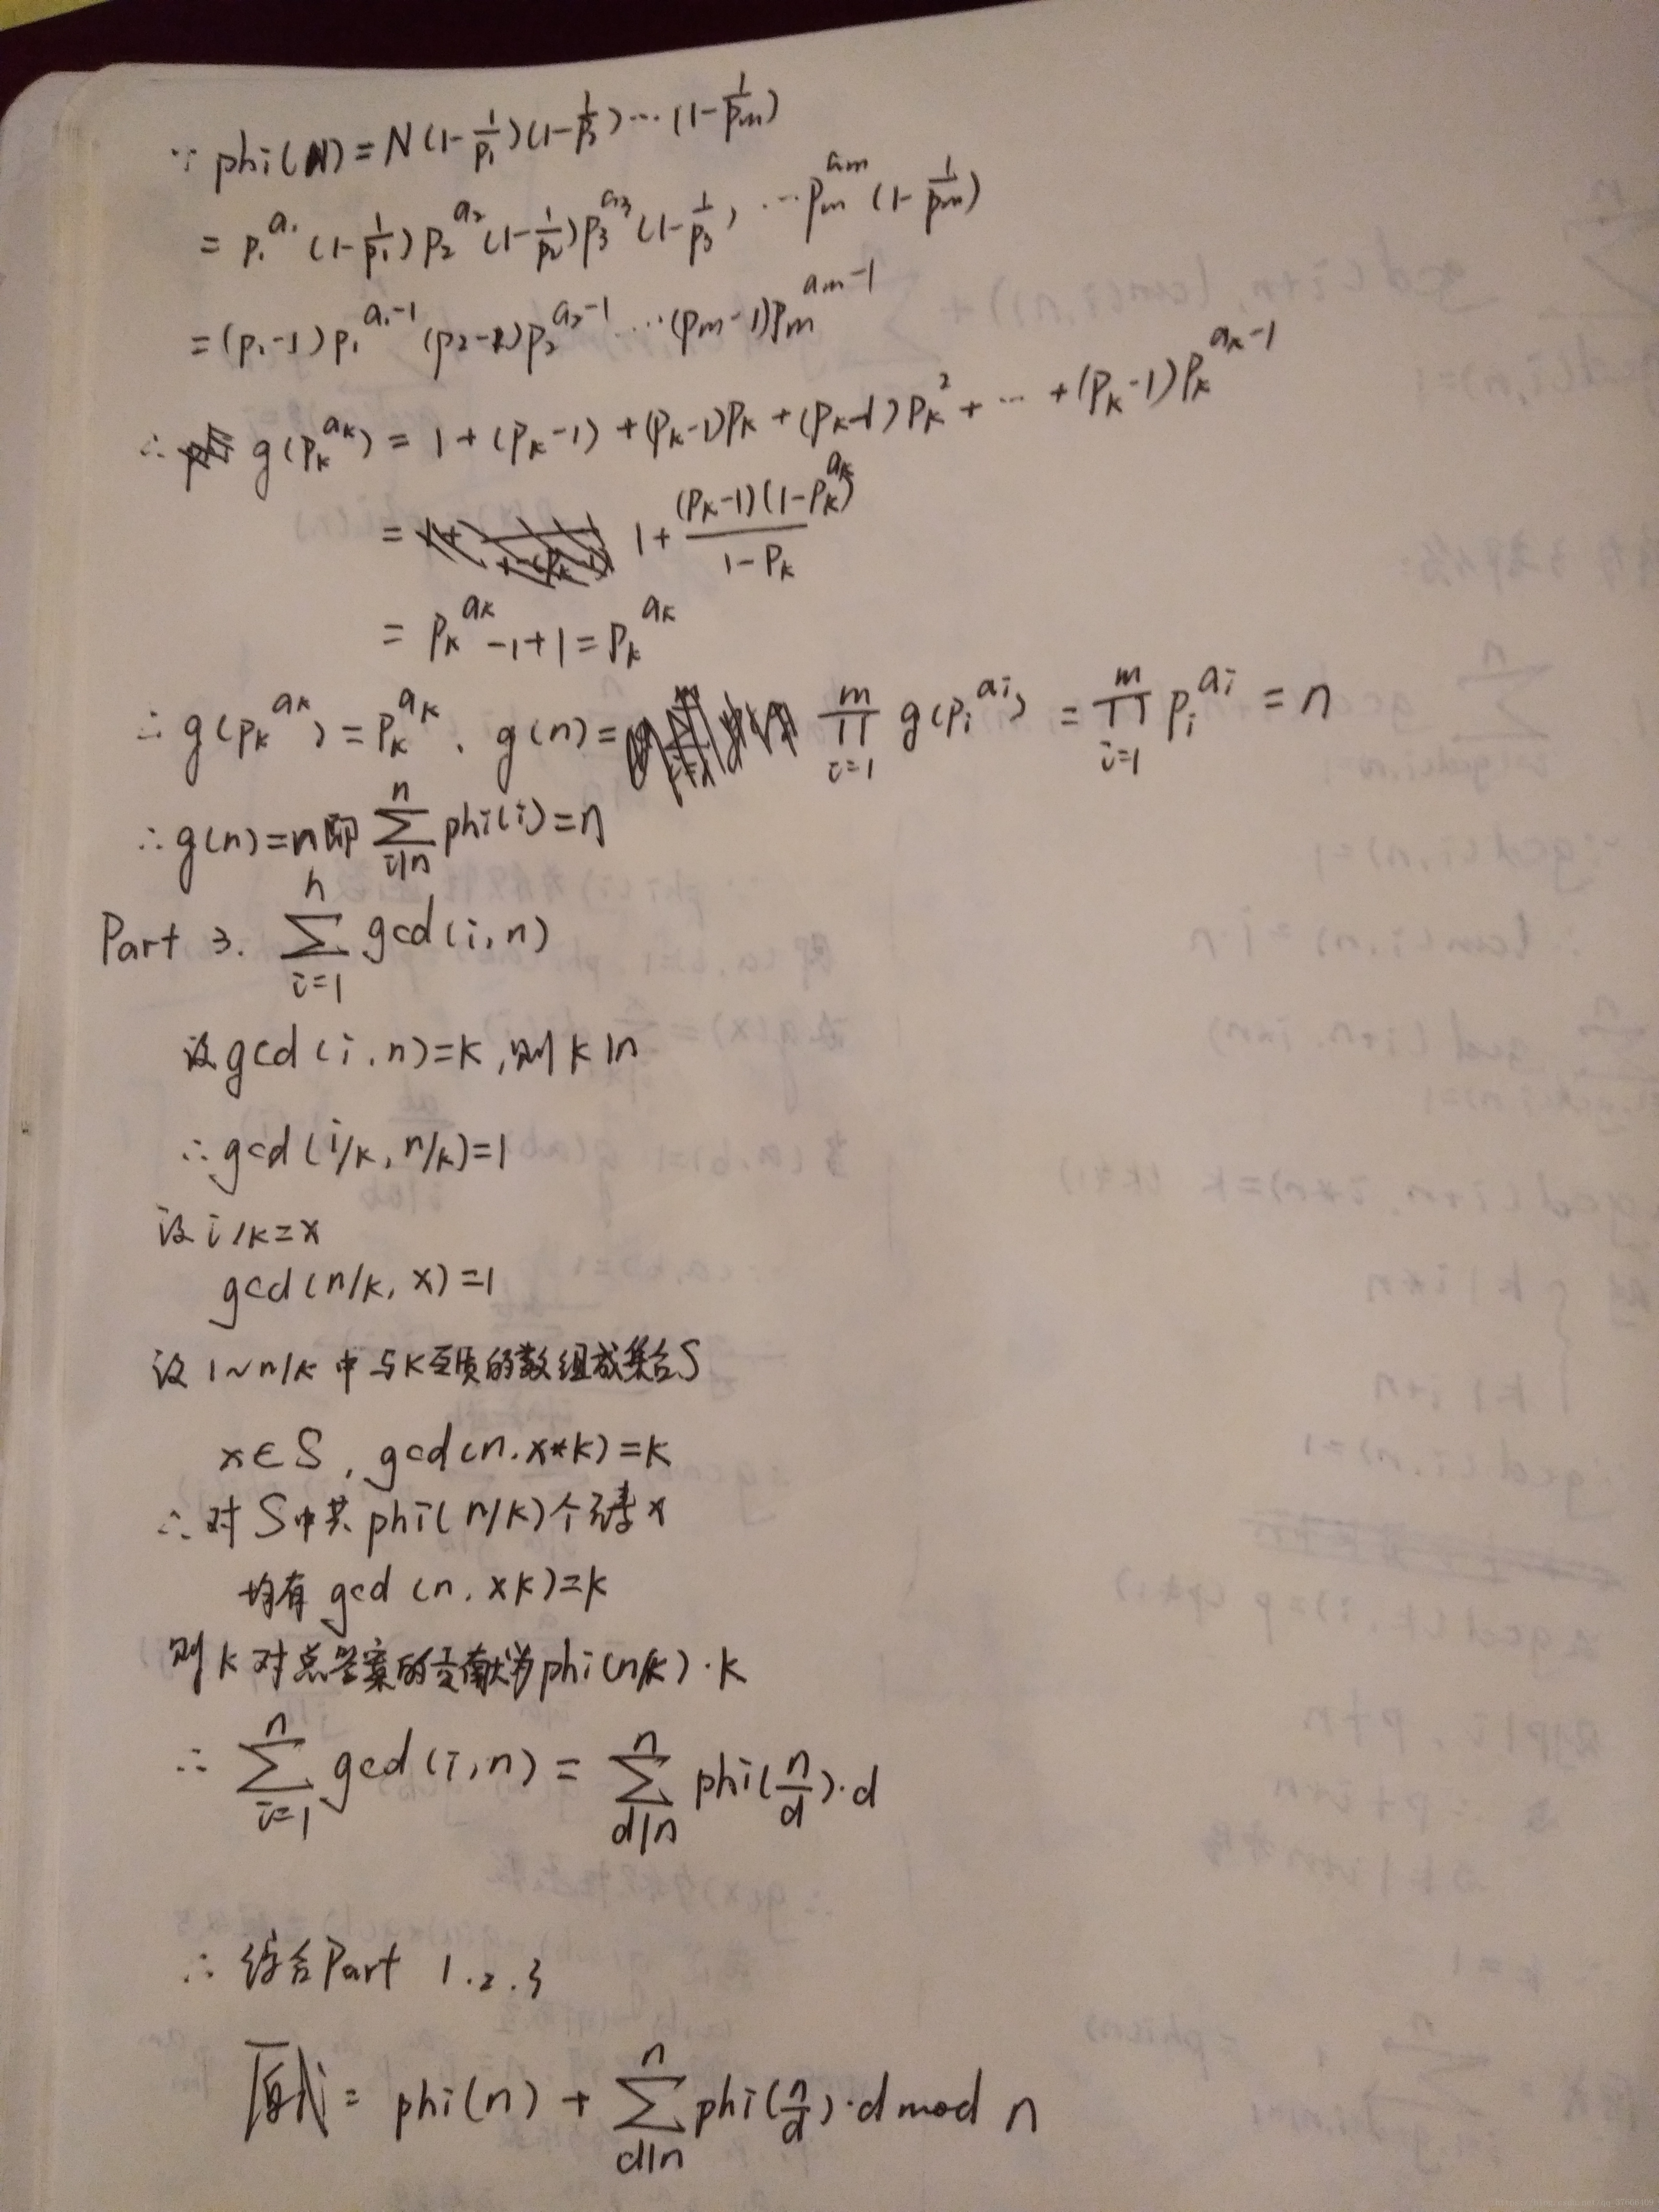 ∵ phi(N) = N(1-1/p₁)(1-1/p₂)…(1-1/pₘ)
= p₁^a₁ (1-1/p₁) p₂^a₂ (1-1/p₂) p₃^a₃ (1-1/p₃) … pₘ^aₘ (1-1/pₘ)
= (p₁-1) p₁^(a₁-1) (p₂-1) p₂^(a₂-1) … (pₘ-1) pₘ^(aₘ-1)
∴ g(pₖ^aₖ) = 1 + (pₖ-1) + (pₖ-1)pₖ + (pₖ-1)pₖ² + … + (pₖ-1)pₖ^(aₖ-1)
= 1 + (pₖ-1)(1-pₖ^aₖ)/(1-pₖ)
= pₖ^aₖ -1+1 = pₖ^aₖ
∴ g(pₖ^aₖ) = pₖ^aₖ, g(n) = ∏_{i=1}^{m} g(pᵢ^aᵢ) = ∏_{i=1}^{m} pᵢ^aᵢ = n
∴ g(n)=n 即 ∑_{i|n}^{n} phi(i) = n
Part 3. ∑_{i=1}^{n} gcd(i,n)
设 gcd(i,n)=k, 则 k|n
∴ gcd(i/k, n/k)=1
设 i/k=x
gcd(n/k, x)=1
设 1~n/k 中与k互质的数组成集合S
x∈S, gcd(n, x*k)=k
∴ 对S中共 phi(n/k)个 x
均有 gcd(n, xk)=k
则k对总答案的贡献为phi(n/k)·k
∴ ∑_{i=1}^{n} gcd(i,n) = ∑_{d|n}^{n} phi(n/d)·d
∴ 综合Part 1.2.3
原式 = phi(n) + ∑_{d|n}^{n} phi(n/d)·d mod n